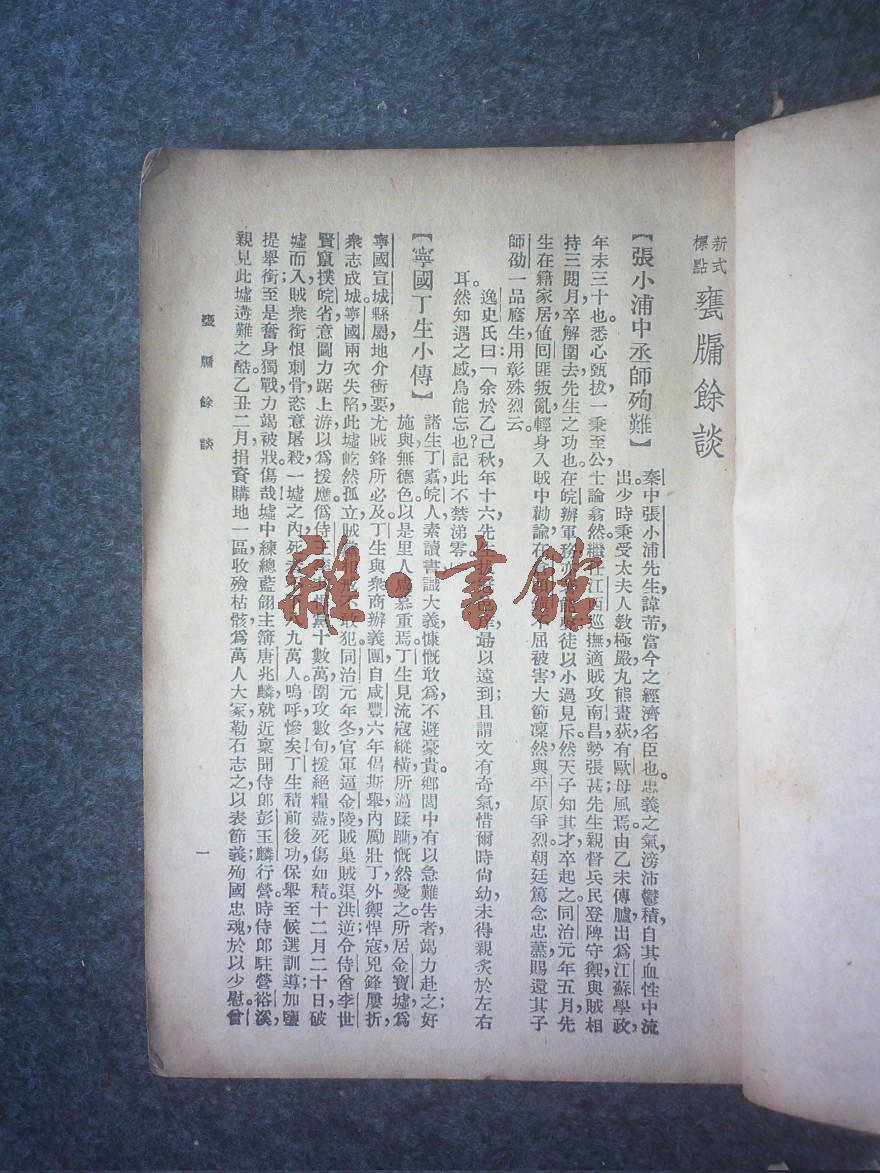 新式
標點
甕牖餘談
【張小浦中丞師殉難】
秦中張小浦先生諱芾當今之經濟名臣也。忠義之氣,滂沛鬱積,自其血性中流
出。少時秉受太夫人教極嚴,九熊畫荻,有歐母風焉。由乙未傳臚出爲江蘇學政,
年未三十也。悉心甄拔,一秉至公,士論翕然。繼 江西巡撫,適賊攻南昌,勢張甚;先生親督兵民登陴守禦,與賊相
持三閱月,卒解圍去,先生之功也。在皖辦軍務,亦 徒以小過見斥。然天子知其才,卒起之。同治元年五月,先
生在籍家居,値回匪叛亂,輕身入賊中勸諭,在 不屈被害,大節凜然,與平原爭烈。朝廷篤念忠藎,賜還其子
師劭一品廕生,用彰殊烈云。
逸史氏曰:「余於乙巳秋,年十六,先生 以遠到;且謂文有奇氣,惜爾時尙幼,未得親炙於左右
耳。然知遇之感,烏能忘也?記此不禁涕零。
【寧國丁生小傳】
諸生丁 ,皖人,素讀書,識大義,慷慨敢爲,不避豪貴。鄉閭中有以急難吿者,竭力赴之;好
施與,無德色。以是里人咸慕重焉。丁生見流寇縱橫,所過蹂躪,慨然憂之。所居金寶墟,爲
寧國宣城縣屬,地介衝要,尤賊鋒所必及。丁生與衆商辦義團,自咸豐六年倡斯舉,內勵壯丁,外禦悍寇,兇鋒屢折,
衆志成城。寧國兩次失陷,此墟屹然孤立,賊 敢犯。同治元年冬,官軍逼金陵賊巢,賊渠洪逆,令侍酋李世
賢竄撲皖省,意圖力踞上游,以爲援應。僞侍王 黨十數萬,圍攻數旬,援絕糧盡,死傷如積。十二月二十日,破
墟而入,賊衆銜恨刺骨,恣意屠殺,一墟之內,死 九萬人。嗚呼!慘矣!丁生積前後功,保舉至候選訓導;加鹽
提舉銜;至是奮身獨戰,力竭被戕。傷哉!墟中練總藍翎主簿唐兆麟,就近稟開侍郎彭玉麟行營,時侍郎駐營裕溪,
親見此墟遘難之酷,乙丑二月,捐資購地一區,收殮枯骸,爲萬人大冢,勒石志之,以表節義;殉國忠魂,於以少慰。曾
甕牖餘談
一
雜·書館